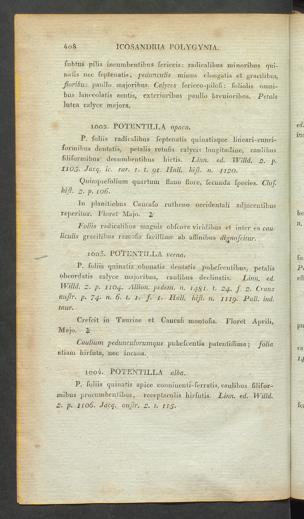 408 ICOSANDRIA POLYGYNIA.
subtus pilis incumbentibus sericeis: radicalibus minoribus qui-
natis nec septenatis, pedunculis minus elongatis et gracilibus,
floribus paullo majoribus. Calyces sericeo-pilosi: foliolis omni-
bus lanceolatis acutis, exterioribus paullo brevioribus. Petala
lutea calyce majora.
1002. POTENTILLA opaca.
P. foliis radicalibus septenatis quinatisque lineari-cunei-
formibus dentatis, petalis retusis calycis longitudine, caulibus
filiformibus decumbentibus hirtis. Linn. ed. Willd. 2. p.
1105. Jacq. ic. rar. 1. t. 91. Hall. hist. n. 1120.
Quinquefolium quartum flavo flore, secunda species. Clus.
hist. 2. p. 106.
In planitiebus Caucaso rutheno occidentali adjacentibus
reperitur. Floret Majo. ♃
Foliis radicalibus magnis obscure viridibus et inter ea cau-
liculis gracilibus ramosis facillime ab affinibus dignoscitur.
1003. POTENTILLA verna.
P. foliis quinatis obovatis dentatis pubescentibus, petalis
obcordatis calyce majoribus, caulibus declinatis. Linn. ed.
Willd. 2. p. 1104. Allion. pedem. n. 1481. t. 24. f. 2. Crantz
austr. p. 74. n. 6. t. 1. f. 1. Hall. hist. n. 1119. Pall. ind.
taur.
Crescit in Tauriae et Caucasi montosis. Floret Aprili,
Majo. ♃
Caulium pedunculorumque pubescentia patentissima; folia
etiam hirsuta, nec incana.
1004. POTENTILLA alba.
P. foliis quinatis apice conniventi-serratis, caulibus filifor-
mibus procumbentibus, receptaculis hirsutis. Linn. ed. Willd.
2. p. 1106. Jacq. austr. 2. t. 115.